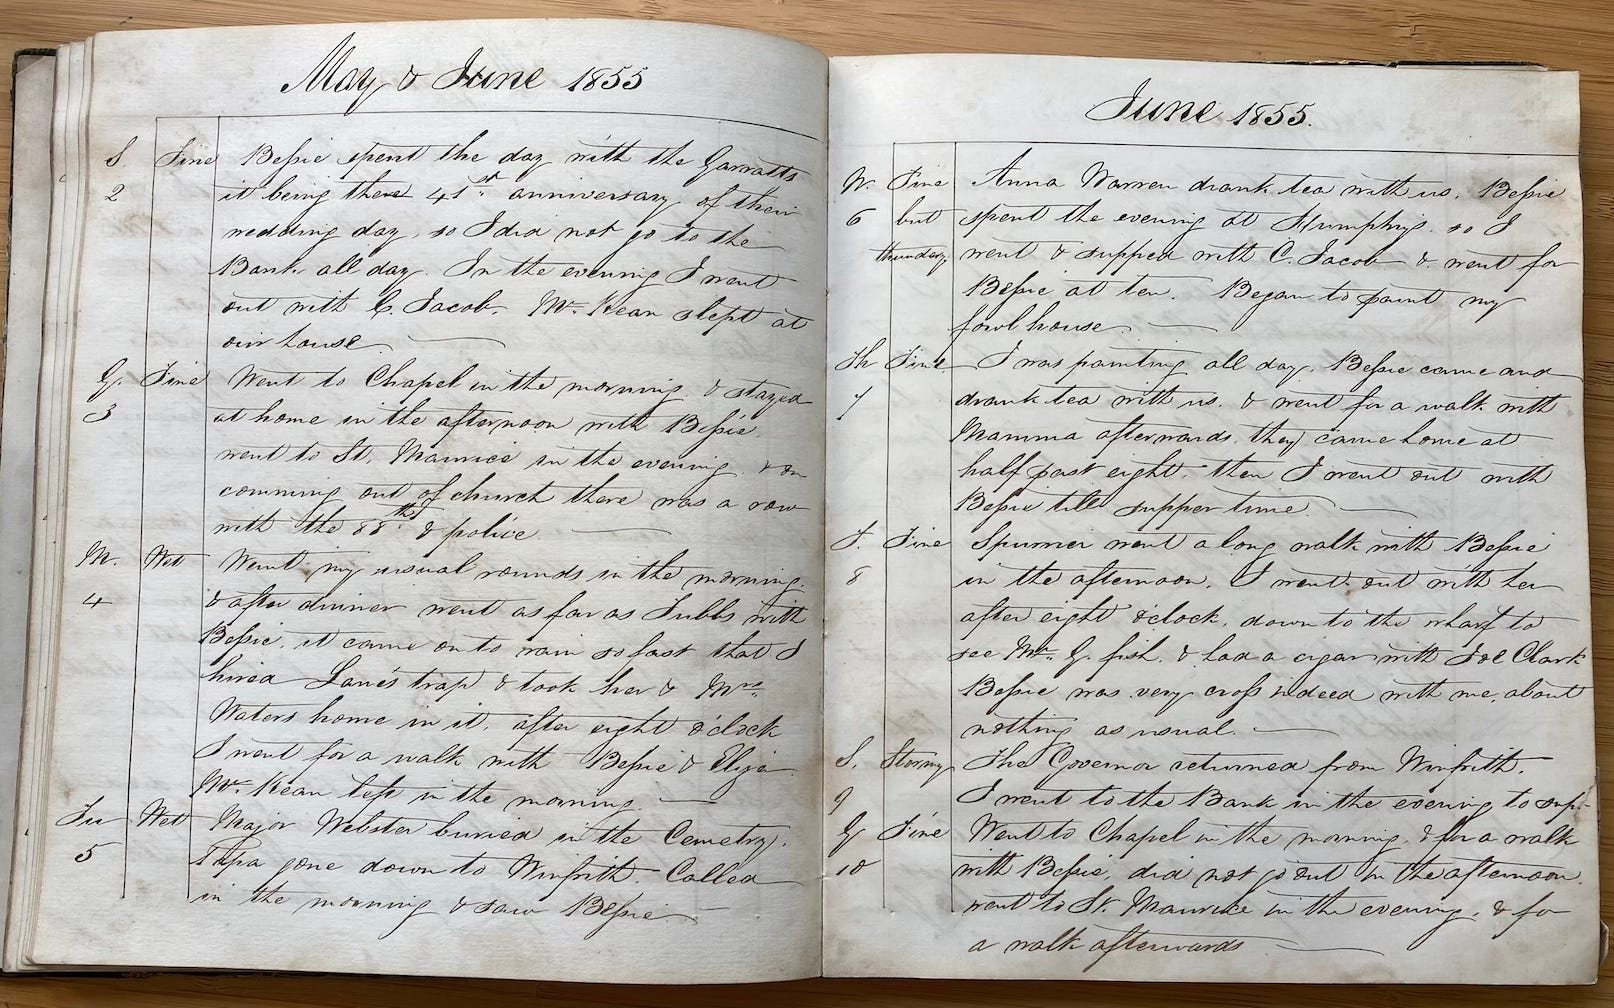 May & June 1855
S. Fine Bessie spent the day with the Garratts
2 it being there 41st anniversary of their
wedding day, so I did not go to the
Bank all day. In the evening I went
out with C. Jacob. Mr. Kean slept at
our house
G. Fine Went to Chapel in the morning, & stayed
3 at home in the afternoon with Bessie,
went to St. Maurice in the evening, & on
comming out of church there was a row
with the 88th & police.
M. Wet Went my usual rounds in the morning,
4 & after dinner went as far as Tubbs with
Bessie, it came on to rain so fast that I
hired Lane's trap & took her & Mrs.
Waters home in it, after eight o'clock
I went for a walk with Bessie & Eliza
Mr. Kean left in the morning.
Tu Wet Major Webster buried in the Cemetry.
5 Papa gone down to Winfrith. Called
in the morning & saw Bessie.
June 1855.
W. Fine Anna Warren drank tea with us. Bessie
6 but spent the evening at Humphris, so I
thundery went & supped with C. Jacob & went for
Bessie at ten. Began to paint my
fowl house
Th Fine I was painting all day. Bessie came and
7 drank tea with us, & went for a walk with
Mamma afterwards, they came home at
half past eight, then I went out with
Bessie till supper time.
F. Fine Spurrier went a long walk with Bessie
8 in the afternoon. I went out with her
after eight o'clock, down to the wharf to
see Mr. G. fish, & had a cigar with Joe Clark
Bessie was very cross indeed with me, about
nothing as usual.
S. Stormy The Governor returned from Winfrith.
9 I went to the Bank in the evening to sup.
G Fine Went to Chapel in the morning, & for a walk
10 with Bessie, did not go out in the afternoon,
went to St. Maurice in the evening, & for
a walk afterwards